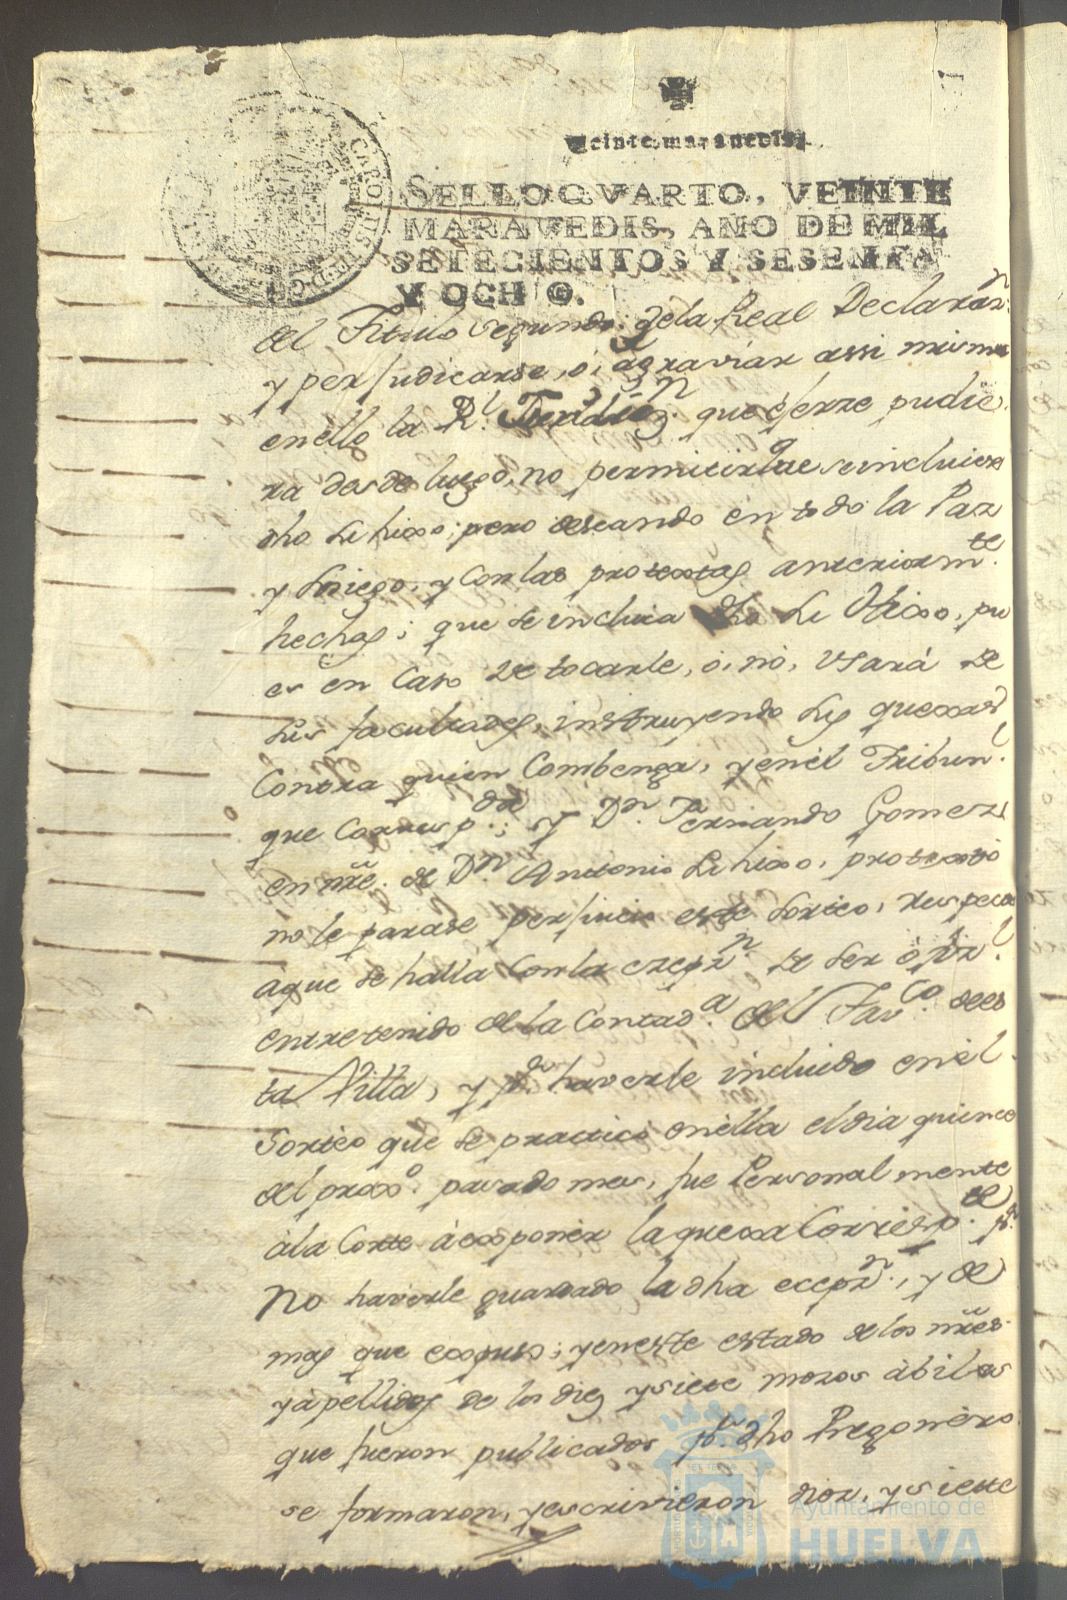 Veinte maravedis.
SELLO QVARTO, VEINTE
MARAVEDIS, AÑO DE MIL
SETECIENTOS Y SESENTA
Y OCHO.
CAROLUS III D G
del Titulo Segundo de la Real Declarazn.
y perjudicarse, o, agraviar assi mismo
en ello la Rl. Jurisdizn. que ejerze pudie
ra desde luego, no permitir que se incluiera
dho su hijo; pero deseando en todo la Paz
y sosiego, y con las protextas anteriormte.
hechas; que se inclua dho su Hixo, pu
es en Caso de tocarle, o, no, Usará de
sus facultades, instruyendo sus quexas
Contra quien Combenga, y en el Tribunl.
que Corresp.da; Y Dn. Fernando Gomez
en nre. de Dn. Antonio su hixo, protextó
no le parase perjuicio este Sorteo, respecto
a que se halla con la exepzn. de ser
entretenido de la Contada. del Tavco. de es
ta Villa, y pr. haverle incluido en él
Sorteo que se practicó en ella el dia quince
del proxo. pasado mes, fue Personalmente
à la Corte à exponer la quexa Correspte. pr.
No haverle guardado la dha ecepzn., y de
mas que expuso; y en este estado de los nres.
y apellidos de los diez y siete mozos àbiles
que fueron publicados pr. dho Pregonero
se formaron, y escrivieron diez, y siete
Ayuntamiento de
HUELVA